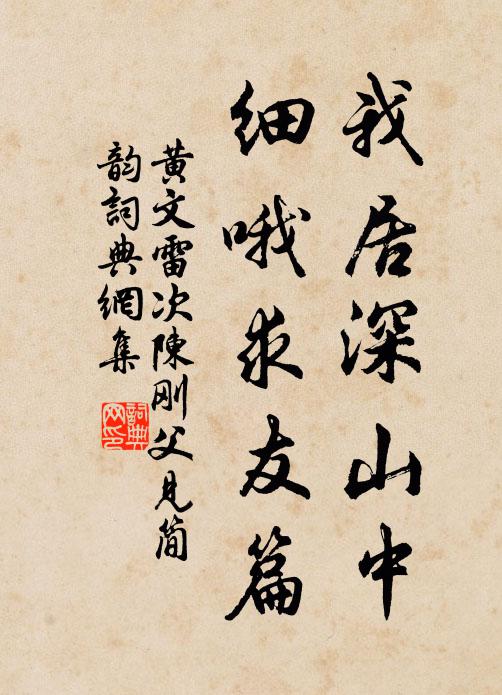 我居深山中
细哦求友篇
黄文雷次陳刚父见简
韵詞典網集
詞典网印